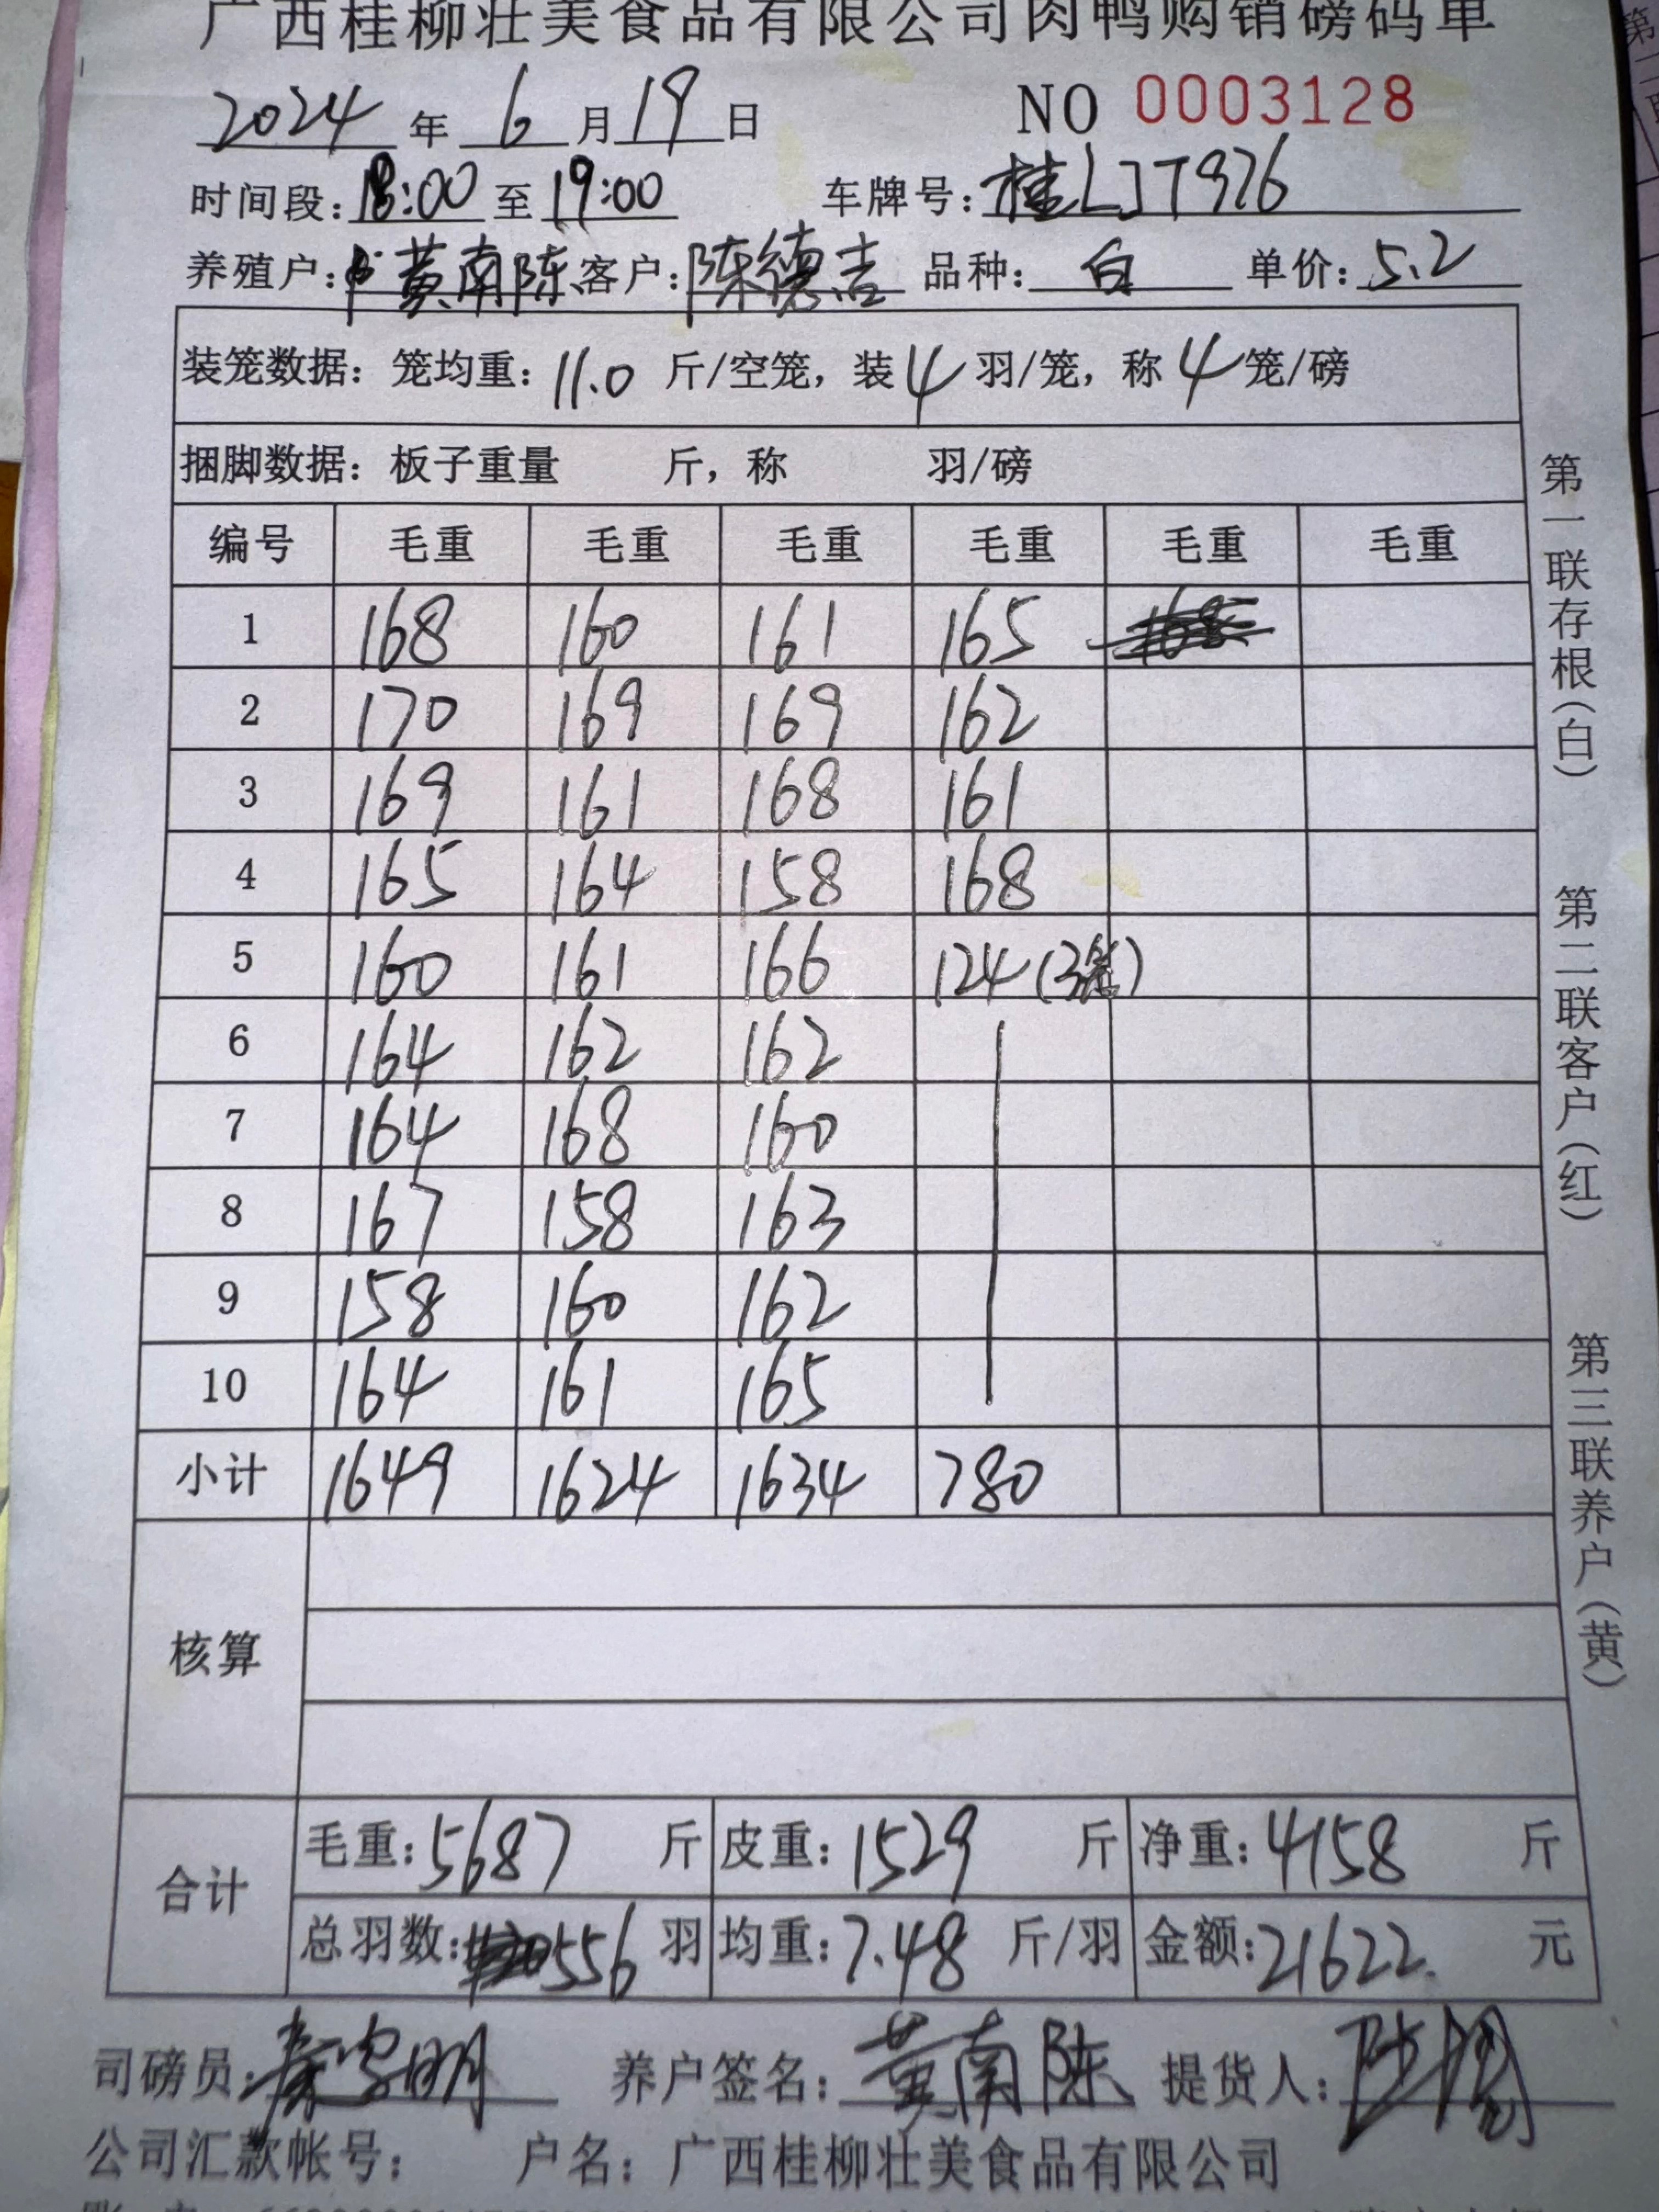 广西桂柳壮美食品有限公司肉鸭购销磅码单
2024 年 6 月 19 日 NO 0003128
时间段: 18:00 至 19:00 车牌号: 桂LJT976
养殖户: 黄南陈 客户: 陈德吉 品种: 白 单价: 5.2
装笼数据: 笼均重: 11.0 斤/空笼, 装 4 羽/笼, 称 4 笼/磅
捆脚数据: 板子重量 斤, 称 羽/磅
编号 毛重 毛重 毛重 毛重 毛重 毛重
1 168 160 161 165
2 170 169 169 162
3 169 161 168 161
4 165 164 158 168
5 160 161 166 124 (3笼)
6 164 162 162
7 164 168 160
8 167 158 163
9 158 160 162
10 164 161 165
小计 1649 1624 1634 780
核算
合计
毛重: 5687 斤 皮重: 1529 斤 净重: 4158 斤
总羽数: 556 羽 均重: 7.48 斤/羽 金额: 21622. 元
司磅员: 养户签名: 黄南陈 提货人:
公司汇款帐号: 户名: 广西桂柳壮美食品有限公司
第一联存根(白)
第二联客户(红)
第三联养户(黄)